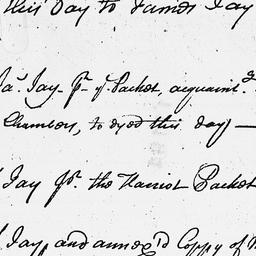 this Day to James Jay
Ja.s Jay pr. ye. Packet, acquaint.g
Chambers, to dyed this day) —
Jay pr. the Harriot Packet
Jay, and annex'd Copy of